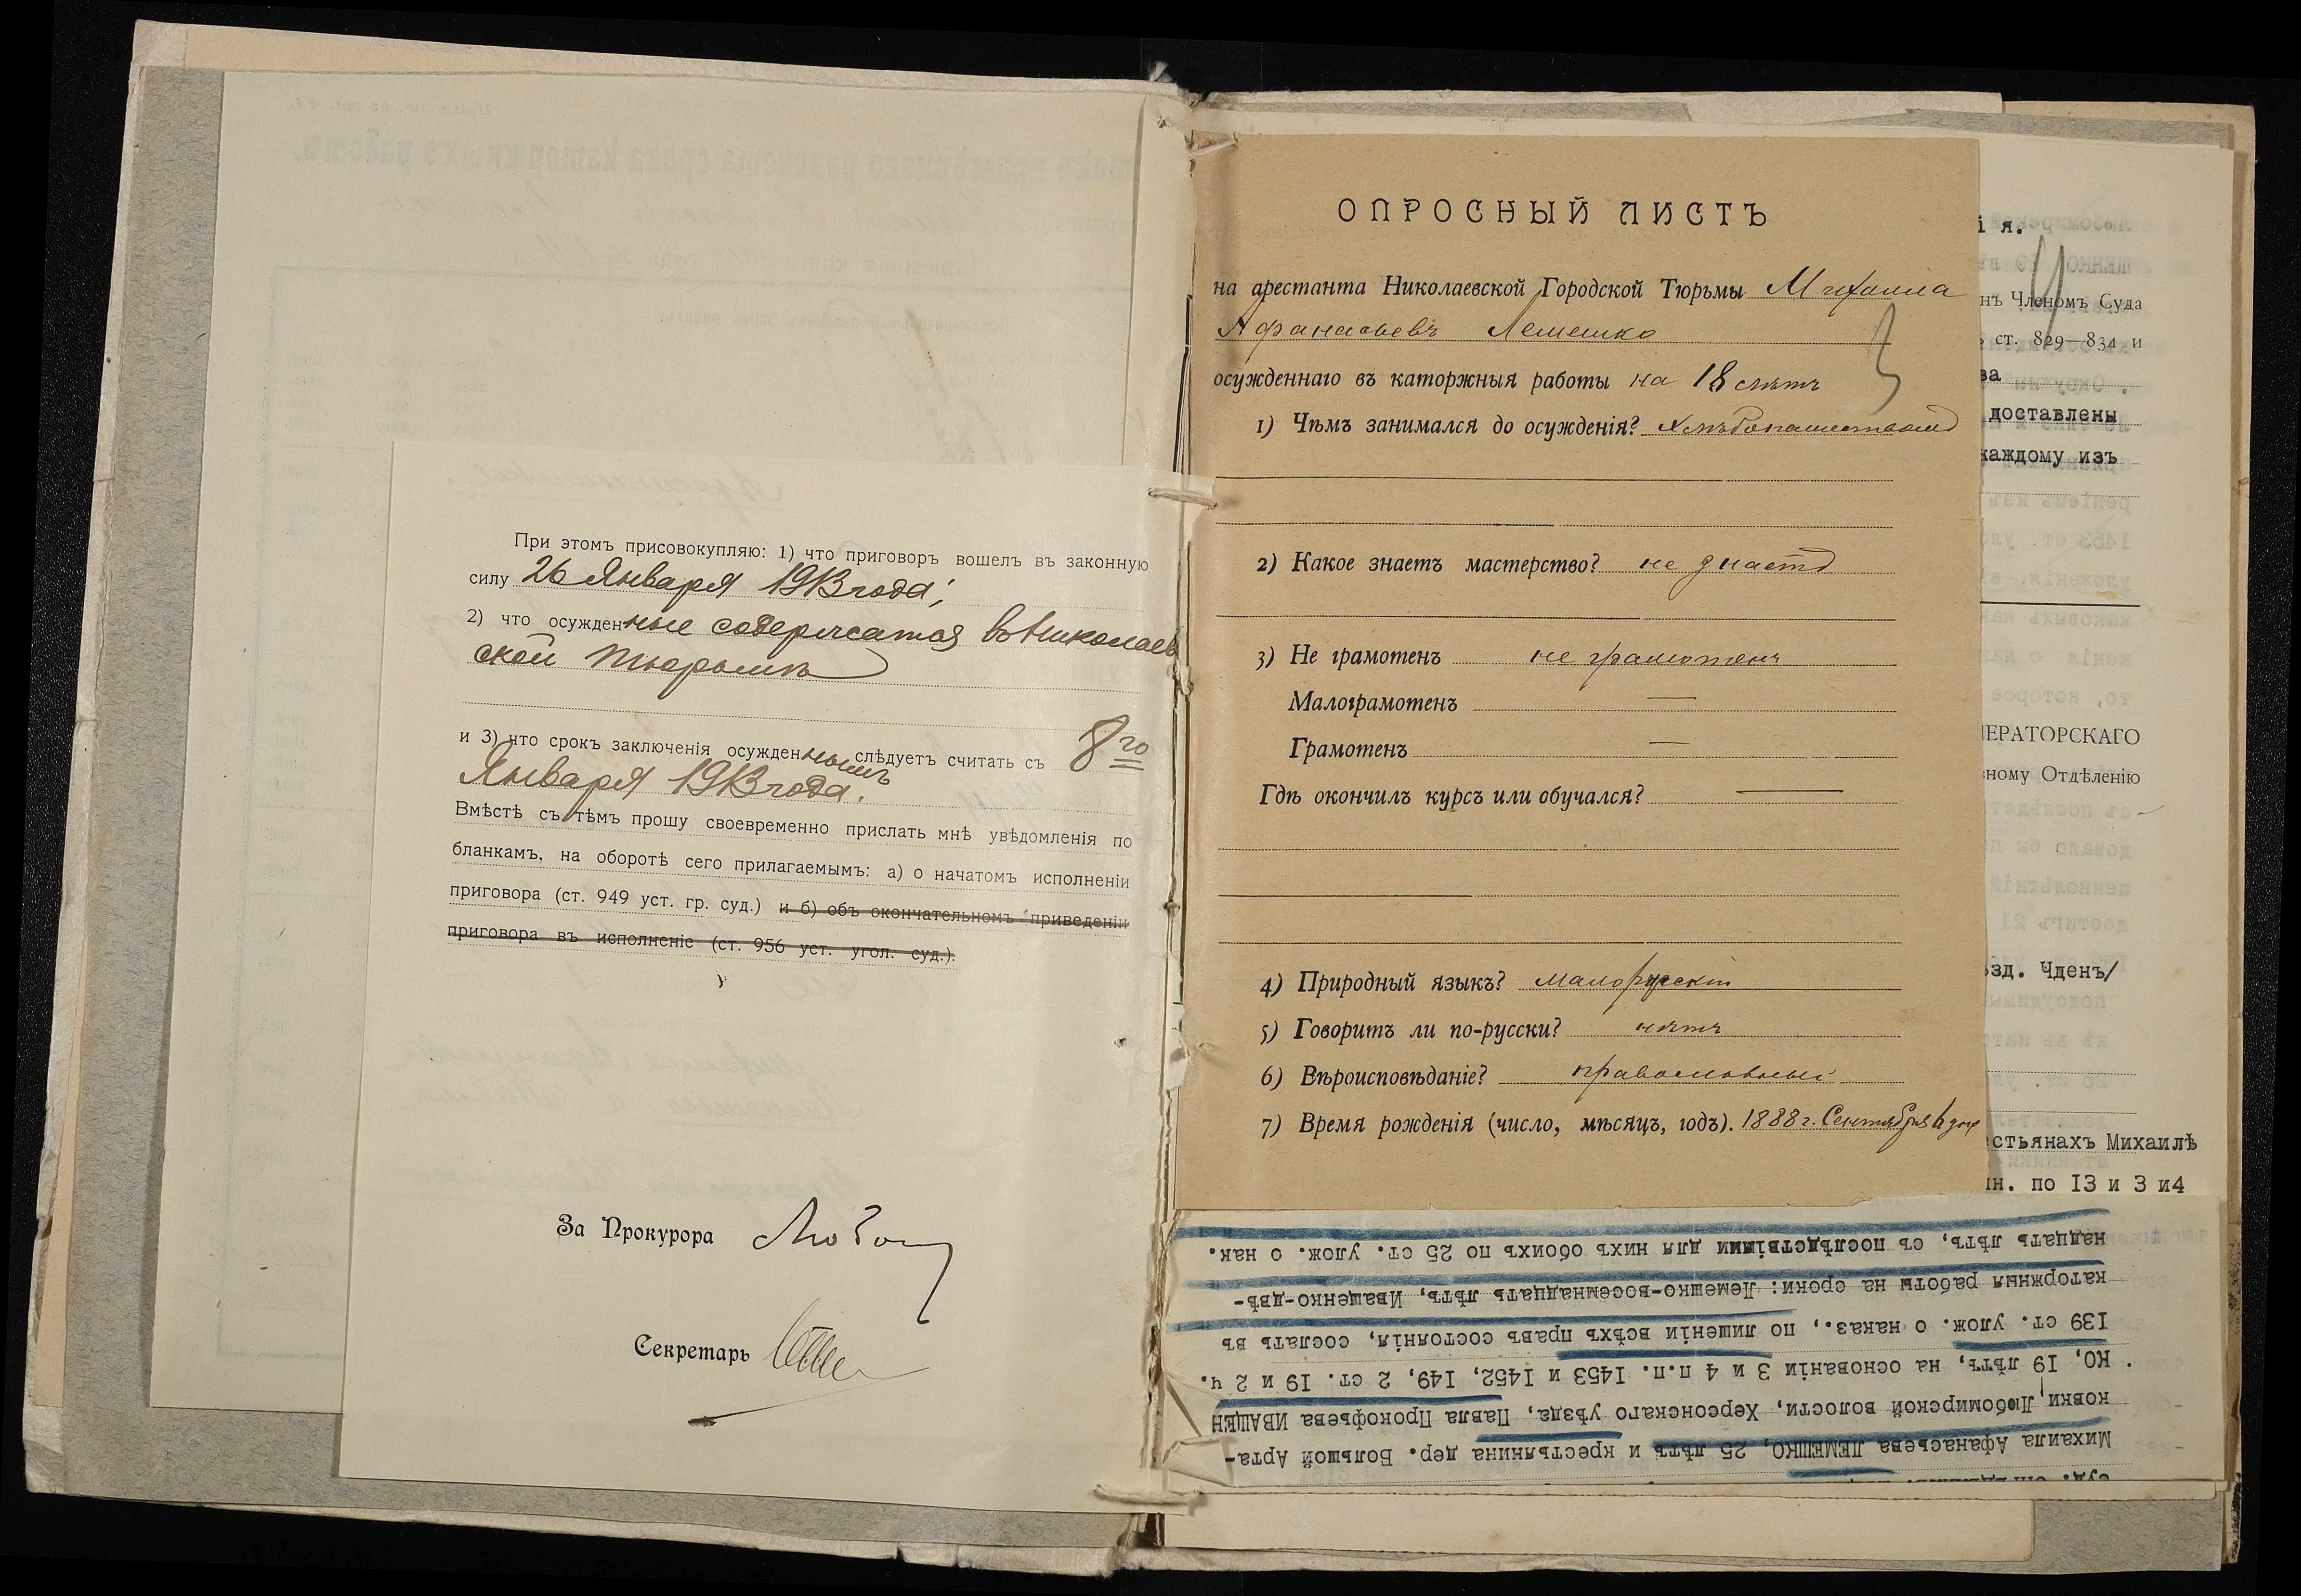 При этомъ присовокупляю: 1) что приговоръ вошелъ въ законную
силу 26 Января 1913 года;
2) что осужденные содержатся въ Николаев
ской тюрьмѣ
и 3) что срокъ заключенія осужденнымъ слѣдуетъ считать съ 8го
Января 1913 года.
Вмѣстѣ съ тѣмъ прошу своевременно прислать мнѣ увѣдомленія по
бланкамъ, на оборотѣ сего прилагаемымъ: а) о начатомъ исполненіи
приговора (ст. 949 уст. гр. суд.) и б) объ окончательномъ приведеніи
приговора въ исполненіе (ст. 956 уст. угол. суд.).
За Прокурора
Секретарь
ОПРОСНЫЙ ЛИСТЪ
на арестанта Николаевской Городской Тюрьмы Михаила
Афанасьевъ Лемешко
осужденнаго въ каторжныя работы на 18 лѣтъ
1) Чѣмъ занимался до осужденія? Хлѣбопашествомъ
2) Какое знаетъ мастерство? не знаетъ
3) Не грамотенъ не грамотенъ
Малограмотенъ —
Грамотенъ —
Гдѣ окончилъ курсъ или обучался? —
4) Природный языкъ? малорускій
5) Говоритъ ли по-русски? нѣтъ
6) Вѣроисповѣданіе? православный
7) Время рожденія (число, мѣсяцъ, годъ). 1888 г. Сентября 6 дня
ія.
нъ Членомъ Суда
ст. 829—834 и
ва
доставлены
каждому изъ
ПЕРАТОРСКАГО
вному Отдѣленію
ѣзд. Чденъ/
стьянахъ Михаилѣ
ин. по 13 и 3 и4
Михаила Афанасьева ЛЕМЕШКО, 25 лѣтъ и крестьянина дер. Большой Арта-
ковки, Любомирской волости, Херсонскаго уѣзда, Павла Прокофьева ИВАЩЕН
КО, 19 лѣтъ, на основаніи 3 и 4 п.п. 1453 и 1452, 149, 2 ст. 19 и 2 ч.
139 ст. улож. о наказ., по лишеніи всѣхъ правъ состоянія, сослать въ
каторжныя работы на сроки: Лемешко-восемнадцать лѣтъ, Иващенко-двѣ-
надцать лѣтъ, съ послѣдствіями для нихъ обоихъ по 25 ст. улож. о нак.